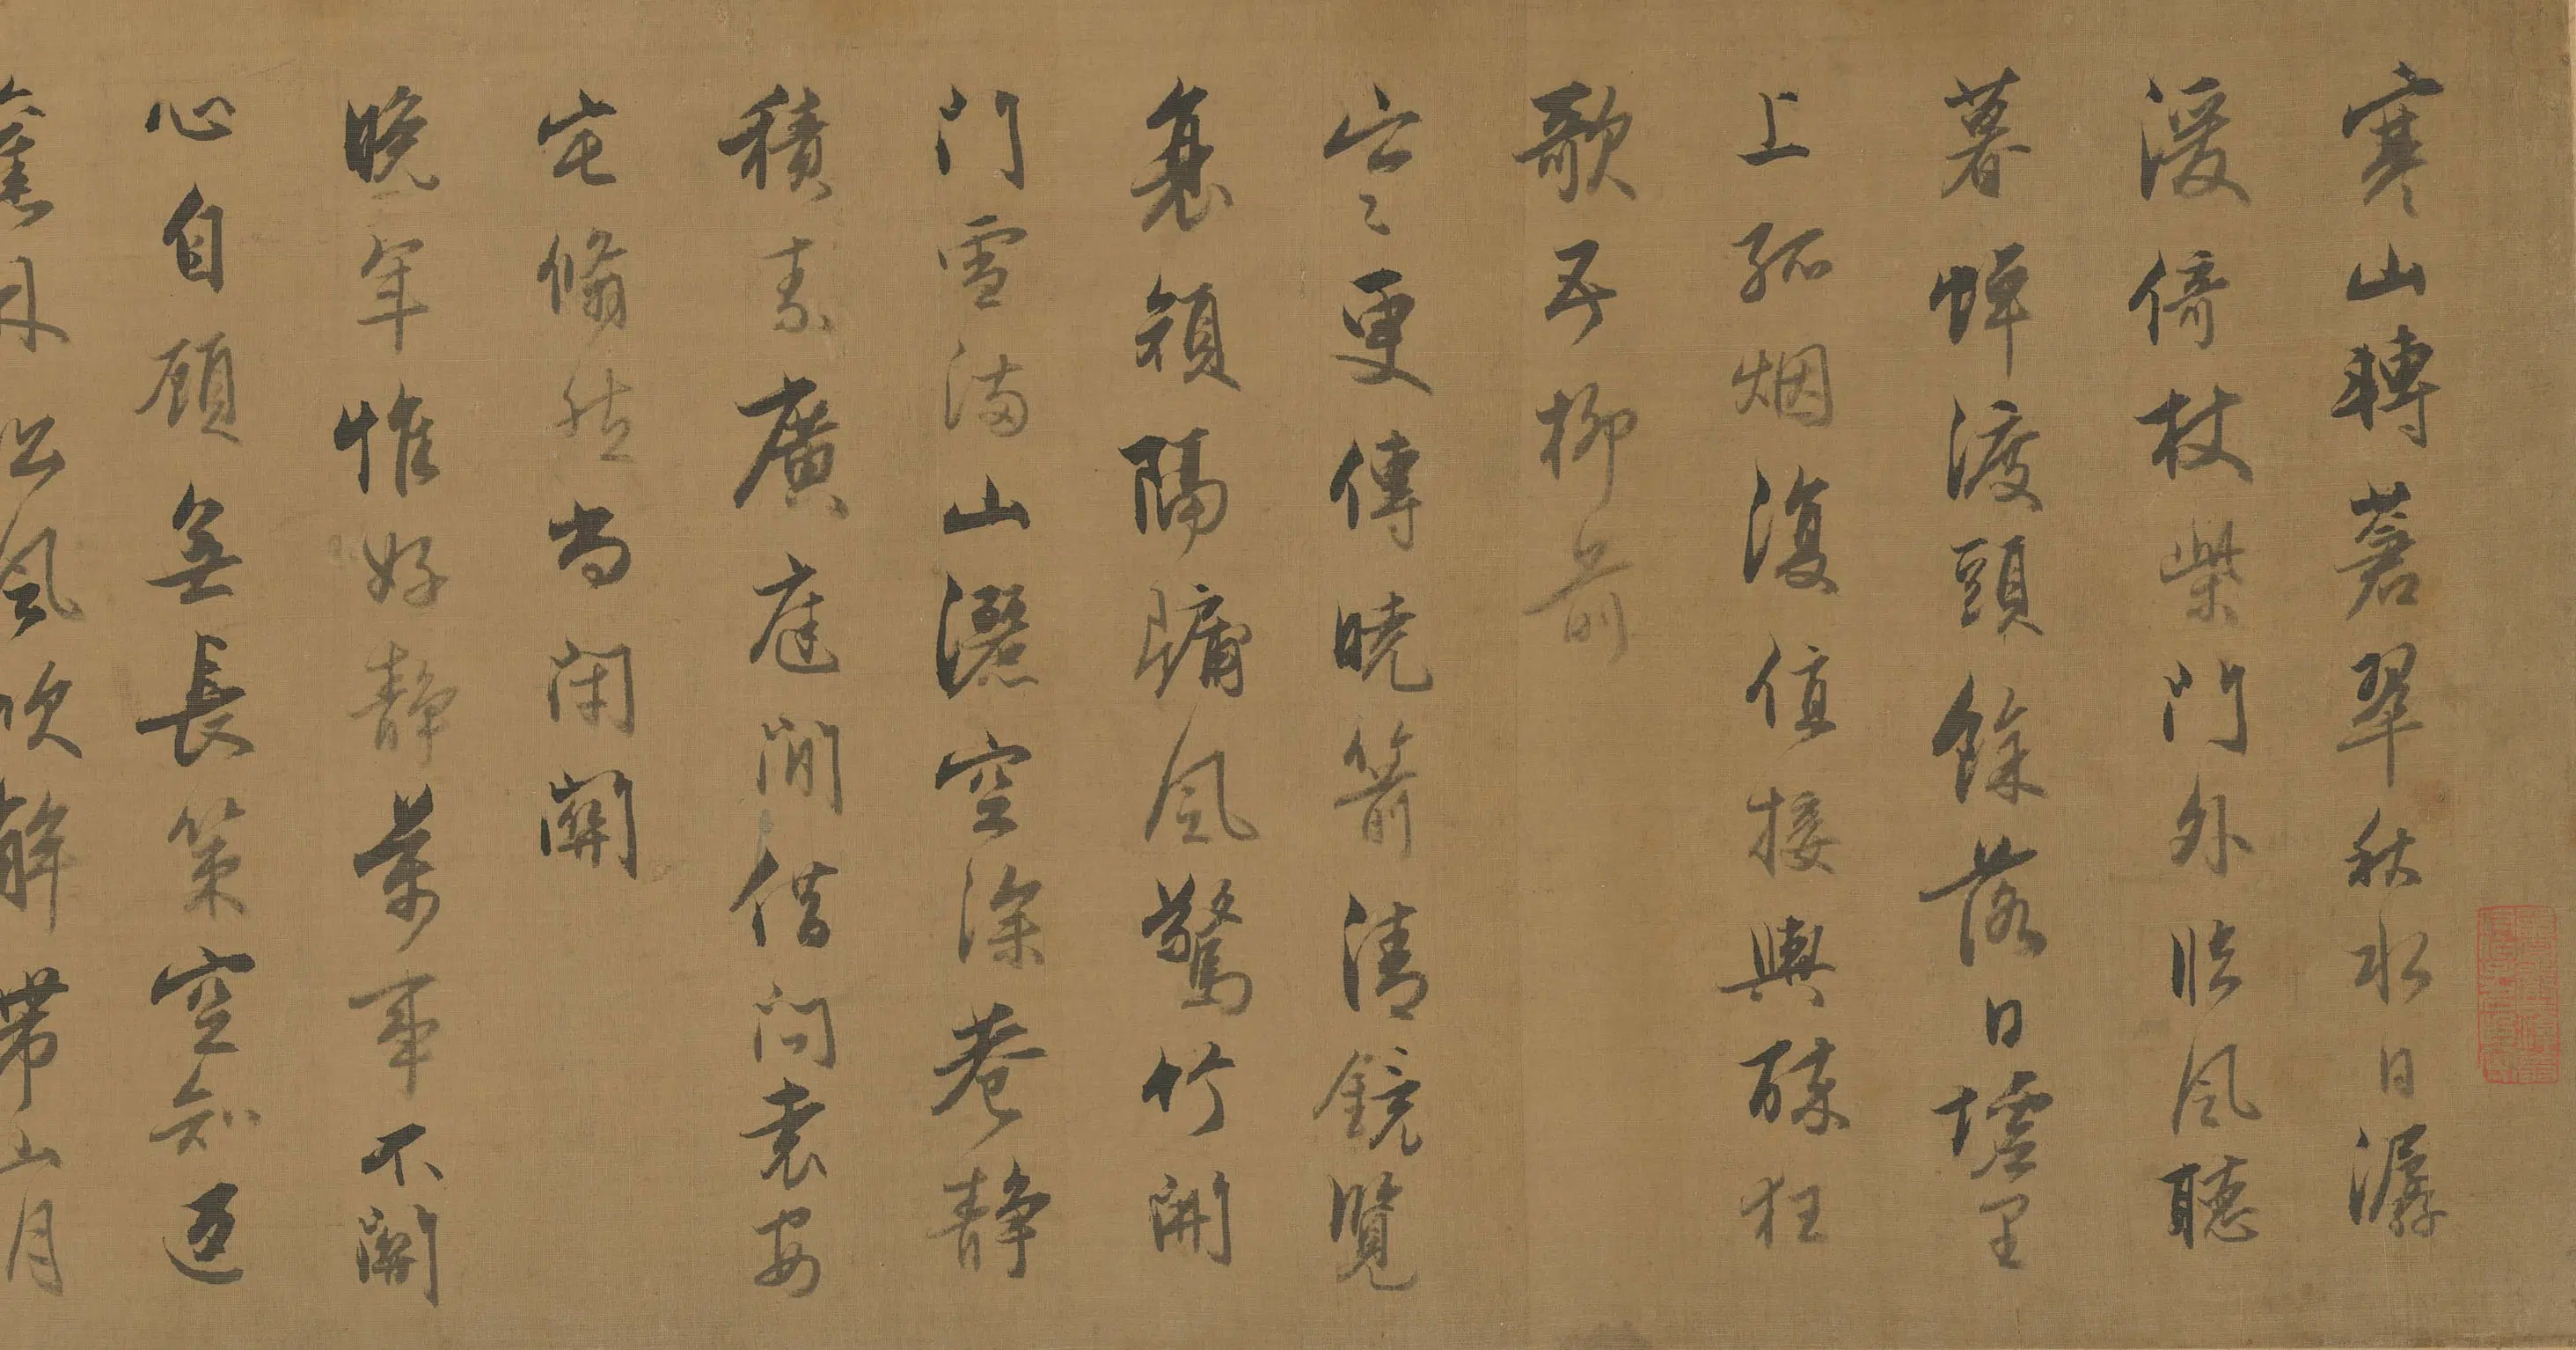 寒山轉蒼翠秋水日潺
湲倚杖柴門外臨風聽
暮蟬渡頭餘落日墟里
上孤烟復值接輿醉狂
歌五柳前
寒更傳曉箭清鏡覽
衰顏隔牖風驚竹開
門雪滿山灑空深巷靜
積素廣庭閒借問袁安
宅翛然尚閉關
晚年惟好靜萬事不關
心自顧無長策空知返
舊林松風吹解帶山月